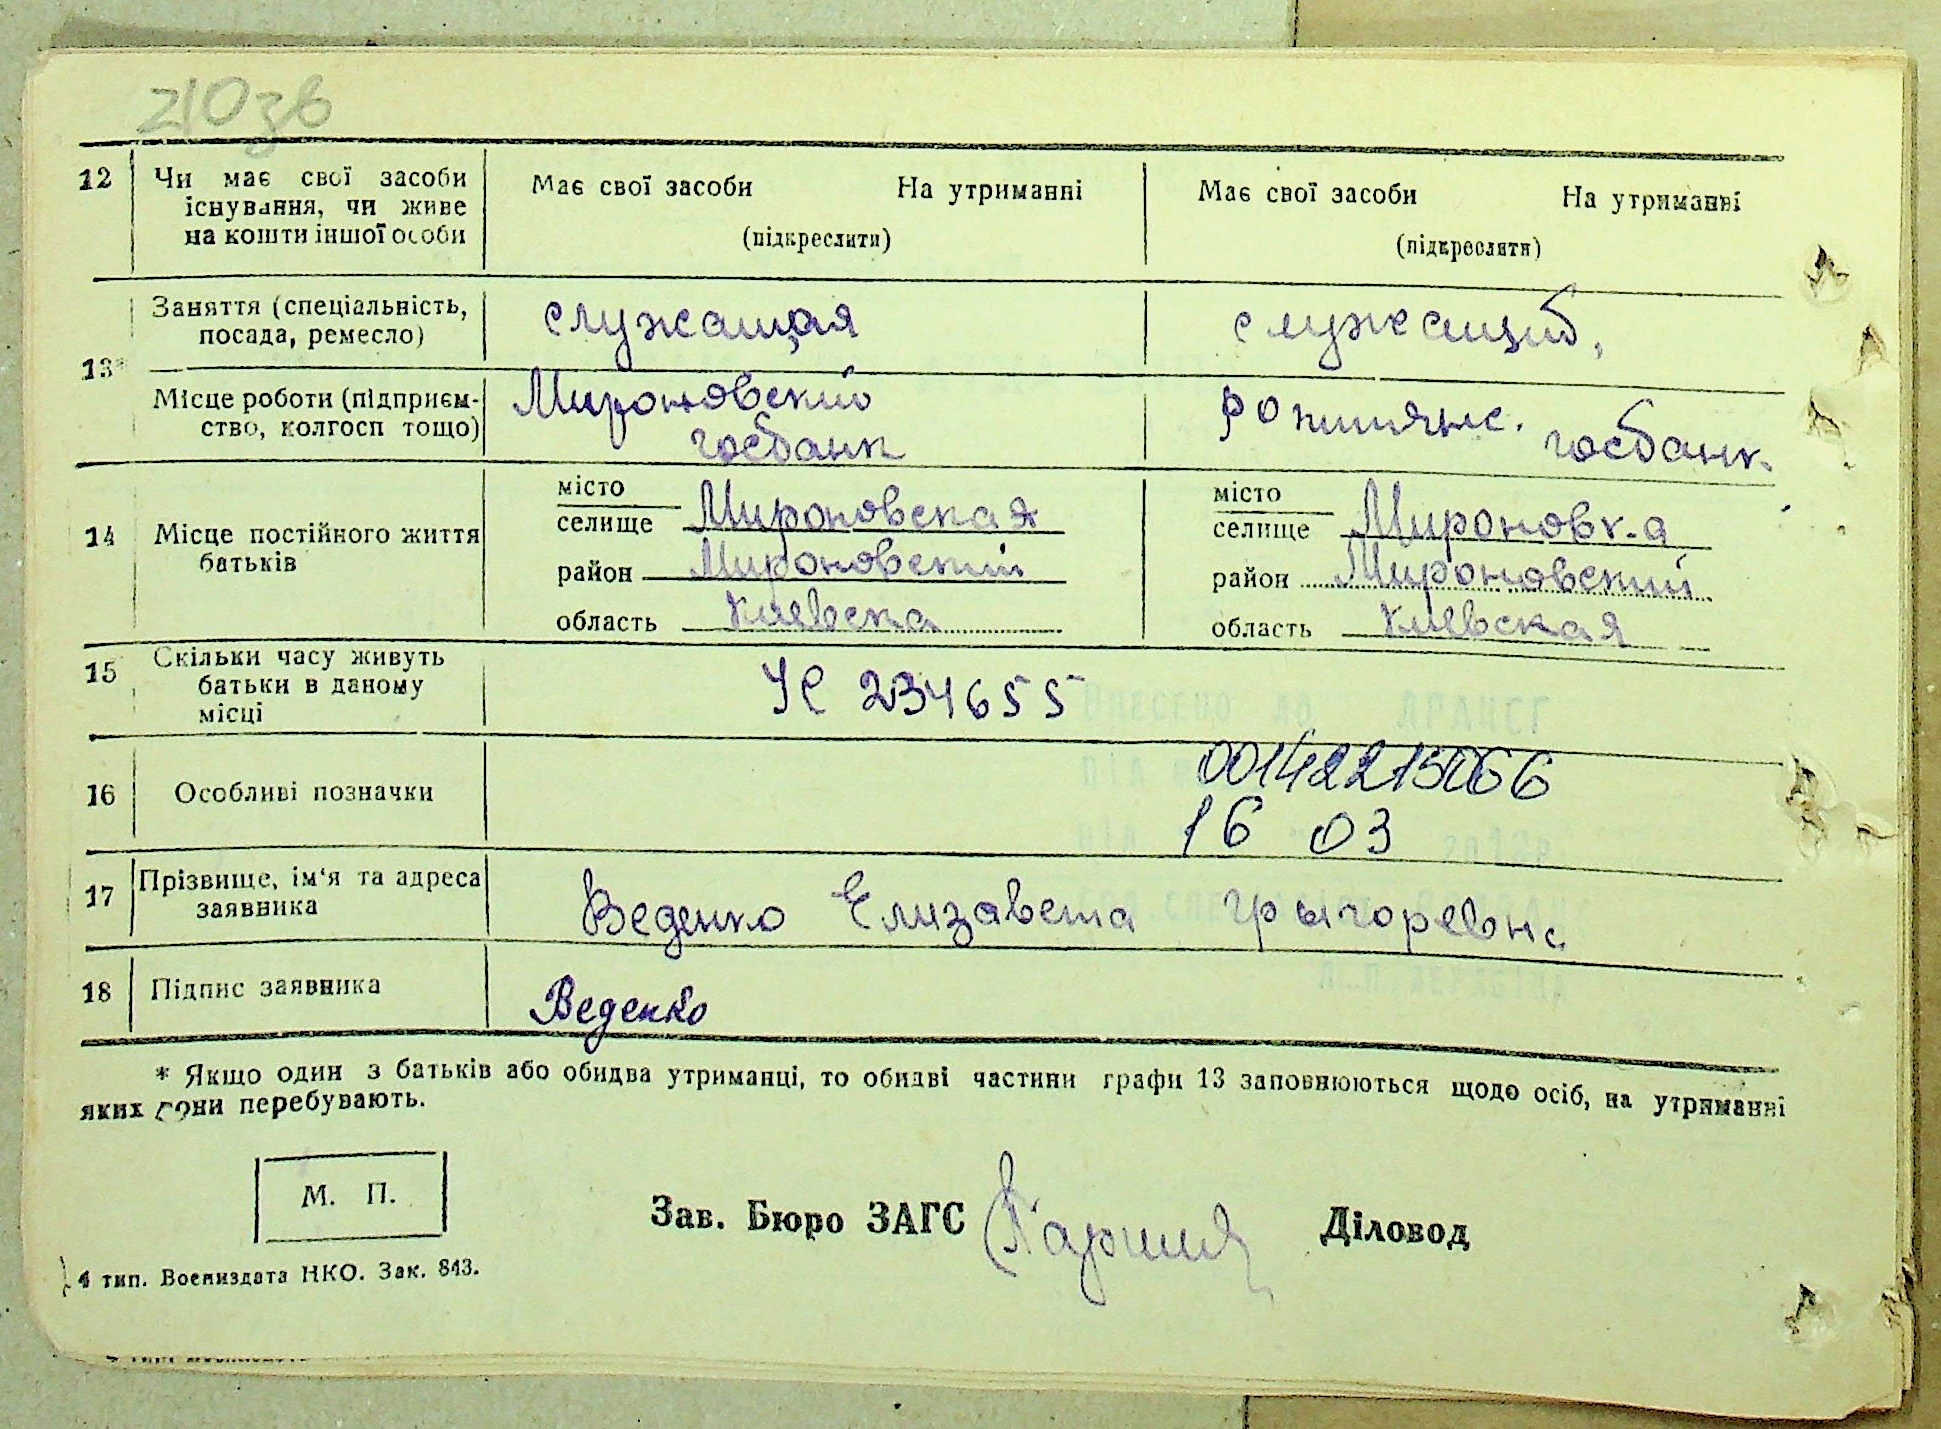 210зв
12 Чи має свої засоби існування, чи живе на кошти іншої особи
Має свої засоби На утриманні
(підкреслити)
Має свої засоби На утриманні
(підкреслити)
13* Заняття (спеціальність, посада, ремесло)
служащая
служащий,
Місце роботи (підприєм-
ство, колгосп тощо)
Мироновский
госбанк
госбанк.
14 Місце постійного життя батьків
місто
селище Мироновская
район Мироновский
область Киевска
місто
селище Мироновка
район Мироновский
область Киевская
15 Скільки часу живуть батьки в даному місці
УС 234655
Внесено до ДРАЦСГ
16 Особливі позначки
00142215066
16 03
2012р
17 Прізвище, ім'я та адреса заявника
Веденко Елизавета Грыгоревна
18 Підпис заявника
Веденко
* Якщо один з батьків або обидва утриманці, то обидві частини графи 13 заповнюються щодо осіб, на утриманні
яких вони перебувають.
М. П.
Зав. Бюро ЗАГС
Діловод
4 тип. Воениздата НКО. Зак. 843.